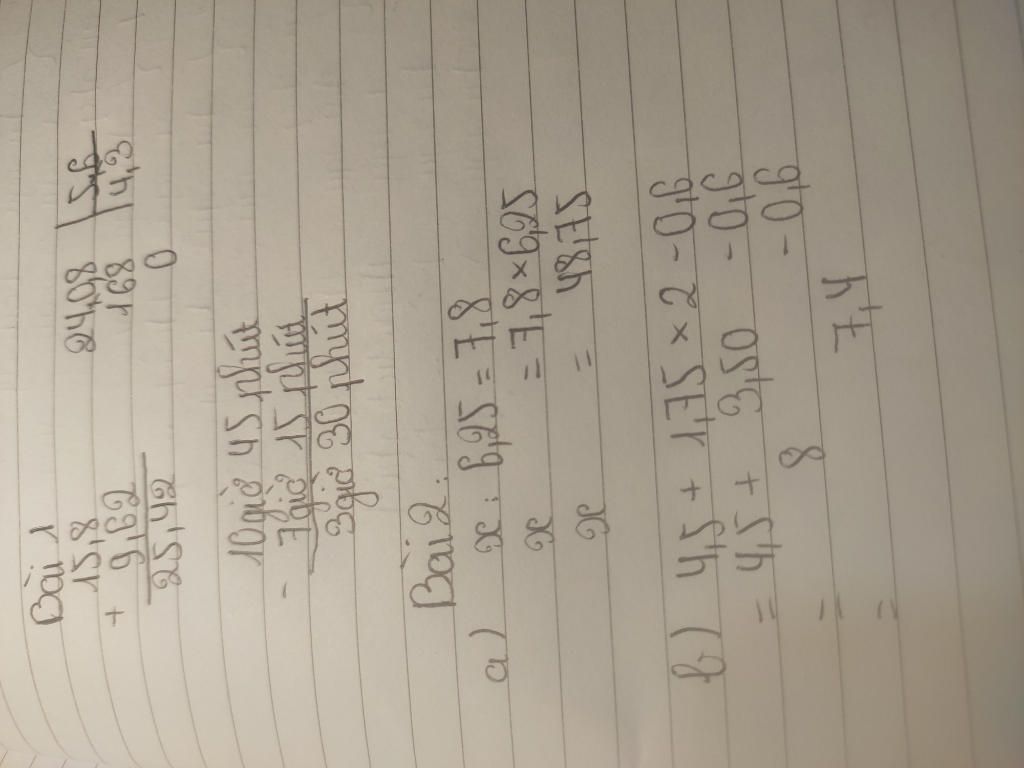 Bài 1
15,8 24,08 | 5,6
+ 9,62 168 | 4,3
25,42 0
10 giờ 45 phút
- 7 giờ 15 phút
3 giờ 30 phút
Bài 2.
a) x : 6,25 = 7,8
x = 7,8 × 6,25
x = 48,75
b) 4,5 + 1,75 × 2 - 0,6
= 4,5 + 3,50 - 0,6
= 8 - 0,6
= 7,4